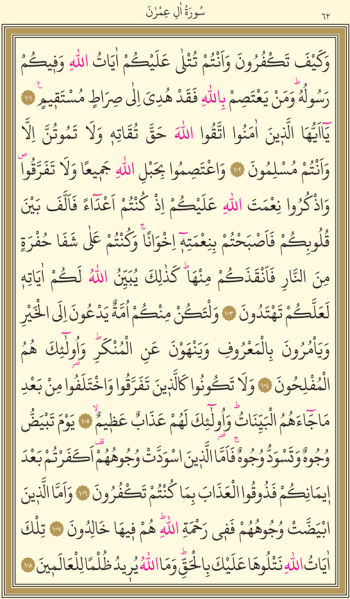 سُورَةُ اٰلِ عِمْرٰنَ ٦٢
وَكَيْفَ تَكْفُرُونَ وَاَنْتُمْ تُتْلٰى عَلَيْكُمْ اٰيَاتُ اللّٰهِ وَفٖيكُمْ
رَسُولُهُؕ وَمَنْ يَعْتَصِمْ بِاللّٰهِ فَقَدْ هُدِيَ اِلٰى صِرَاطٍ مُسْتَقٖيمٍࣖ ١٠١
يَٓا اَيُّهَا الَّذٖينَ اٰمَنُوا اتَّقُوا اللّٰهَ حَقَّ تُقَاتِهٖ وَلَا تَمُوتُنَّ اِلَّا
وَاَنْتُمْ مُسْلِمُونَ ١٠٢ وَاعْتَصِمُوا بِحَبْلِ اللّٰهِ جَمٖيعًا وَلَا تَفَرَّقُواࣕ
وَاذْكُرُوا نِعْمَتَ اللّٰهِ عَلَيْكُمْ اِذْ كُنْتُمْ اَعْدَٓاءً فَاَلَّفَ بَيْنَ
قُلُوبِكُمْ فَاَصْبَحْتُمْ بِنِعْمَتِهٖٓ اِخْوَانًاۚ وَكُنْتُمْ عَلٰى شَفَا حُفْرَةٍ
مِنَ النَّارِ فَاَنْقَذَكُمْ مِنْهَاؕ كَذٰلِكَ يُبَيِّنُ اللّٰهُ لَكُمْ اٰيَاتِهٖ
لَعَلَّكُمْ تَهْتَدُونَ ١٠٣ وَلْتَكُنْ مِنْكُمْ اُمَّةٌ يَدْعُونَ اِلَى الْخَيْرِ
وَيَأْمُرُونَ بِالْمَعْرُوفِ وَيَنْهَوْنَ عَنِ الْمُنْكَرِؕ وَاُو۬لٰٓئِكَ هُمُ
الْمُفْلِحُونَ ١٠٤ وَلَا تَكُونُوا كَالَّذٖينَ تَفَرَّقُوا وَاخْتَلَفُوا مِنْ بَعْدِ
مَا جَٓاءَهُمُ الْبَيِّنَاتُؕ وَاُو۬لٰٓئِكَ لَهُمْ عَذَابٌ عَظٖيمٌۙ ١٠٥ يَوْمَ تَبْيَضُّ
وُجُوهٌ وَتَسْوَدُّ وُجُوهٌۚ فَاَمَّا الَّذٖينَ اسْوَدَّتْ وُجُوهُهُمْ اَكَفَرْتُمْ بَعْدَ
اٖيمَانِكُمْ فَذُوقُوا الْعَذَابَ بِمَا كُنْتُمْ تَكْفُرُونَ ١٠٦ وَاَمَّا الَّذٖينَ
ابْيَضَّتْ وُجُوهُهُمْ فَفٖي رَحْمَةِ اللّٰهِؕ هُمْ فٖيهَا خَالِدُونَ ١٠٧ تِلْكَ
اٰيَاتُ اللّٰهِ نَتْلُوهَا عَلَيْكَ بِالْحَقِّؕ وَمَا اللّٰهُ يُرٖيدُ ظُلْمًا لِلْعَالَمٖينَ ١٠٨